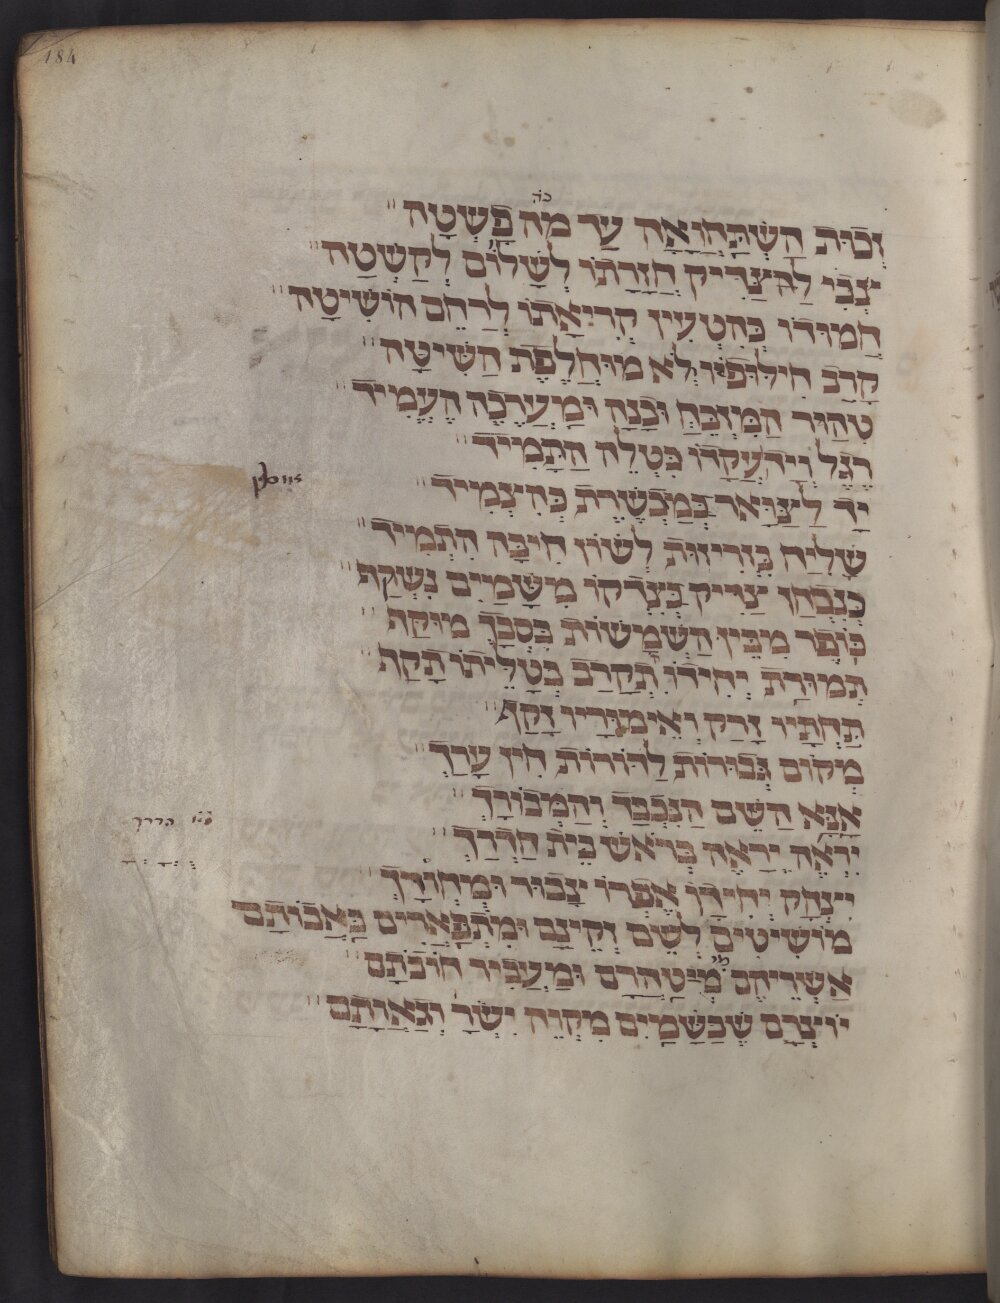 184
כה
זְכוּת הַשְׁתַּחֲוָאָה עַד מָה פָּשְׁטָה
צְבִי לְהַצְדִּיק חֲזָרָתוֹ לְשָׁלוֹם לְקַשְׁטָהּ
חֲמוֹרוֹ כְּהִטְעִין קְרִיאָתוֹ לְרַחֵם הוֹשִׁיטָה
קֶרֶב חִילּוּפָיו לֹא מוּחְלֶפֶת הַשִּׁיטָה
טִהוּר הַמִּזְבֵּחַ וּבָנָה וּמַעֲרָכָה הֶעֱמִיד
רֶגֶל וְיָד עֲקָדוֹ כְּטָלֶה הַתָּמִיד
יָד לְצַוָּאר בְּמַבְשֶׁרֶת כְּהִצְמִיד
שָׁלִיחַ בִּזְרִיזוּת לְשׁוֹן חִיבָּה הִתְמִיד
כְּנִבְחַן צַדִּיק בְּצִדְקוֹ מִשָּׁמַיִם נִשְׁקַף
כּוֹפֶר מִבֵּין הַשְּׁמָשׁוֹת בִּסְבָךְ מוּקַף
תְּמוּרַת יְחִידוֹ תִּקְרַב בְּטָלִיתוֹ תָּקַף
תַּחְתָּיו זָרַק וְאֵימוּרָיו זָקַף
מְקוֹם גְּבוּרוֹת לְהוֹרוֹת חִין עָרַךְ
אָנָּא הַשֵּׁם הַנִּכְבָּד וְהַמְבוֹרָךְ
יִרְאֶה יֵרָאֶה בְּרֹאשׁ בֵּית הַדֶּרֶךְ
הדרך
יִצְחָק יְחִידָן אֶפְרוֹ צָבוּר וּמְחוּרָךְ
מוֹשִׁיטִים לְשֵׁם וְקֵיצָם וּמִתְפָּאֲרִים בַּאֲבוֹתָם
אַשְׁרֵיהֶם מִי מְטַהֲרָם וּמַעֲבִיר חוֹבָתָם
יוֹצְרָם שֶׁבַּשָּׁמַיִם מִקְוֵה יִשְׂרָ וְגַאֲוָתָם